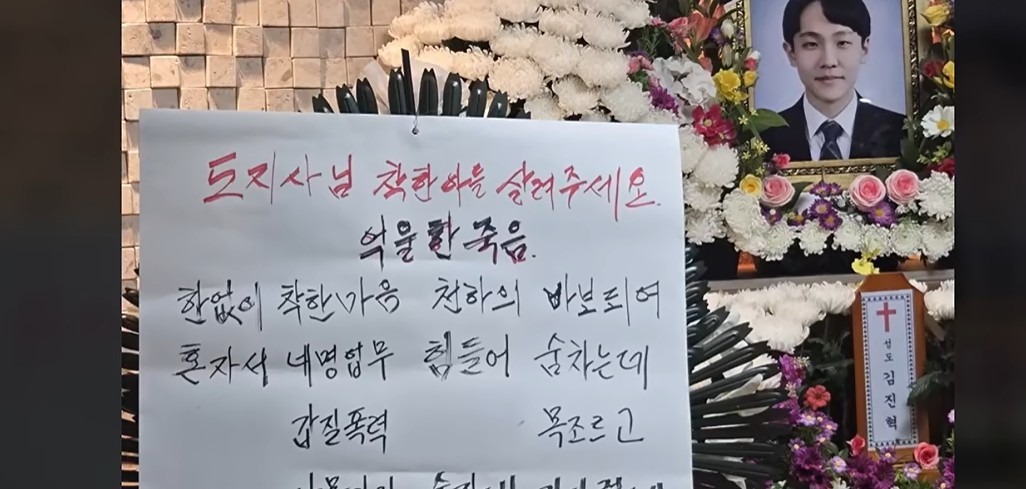 도지사님 착한아들 살려주세요.
억울한 죽음.
한없이 착한가음 천하의 바보되어
혼자서 네명업무 힘들어 숨차는데
갑질폭력 목조르고
성도 김진혁